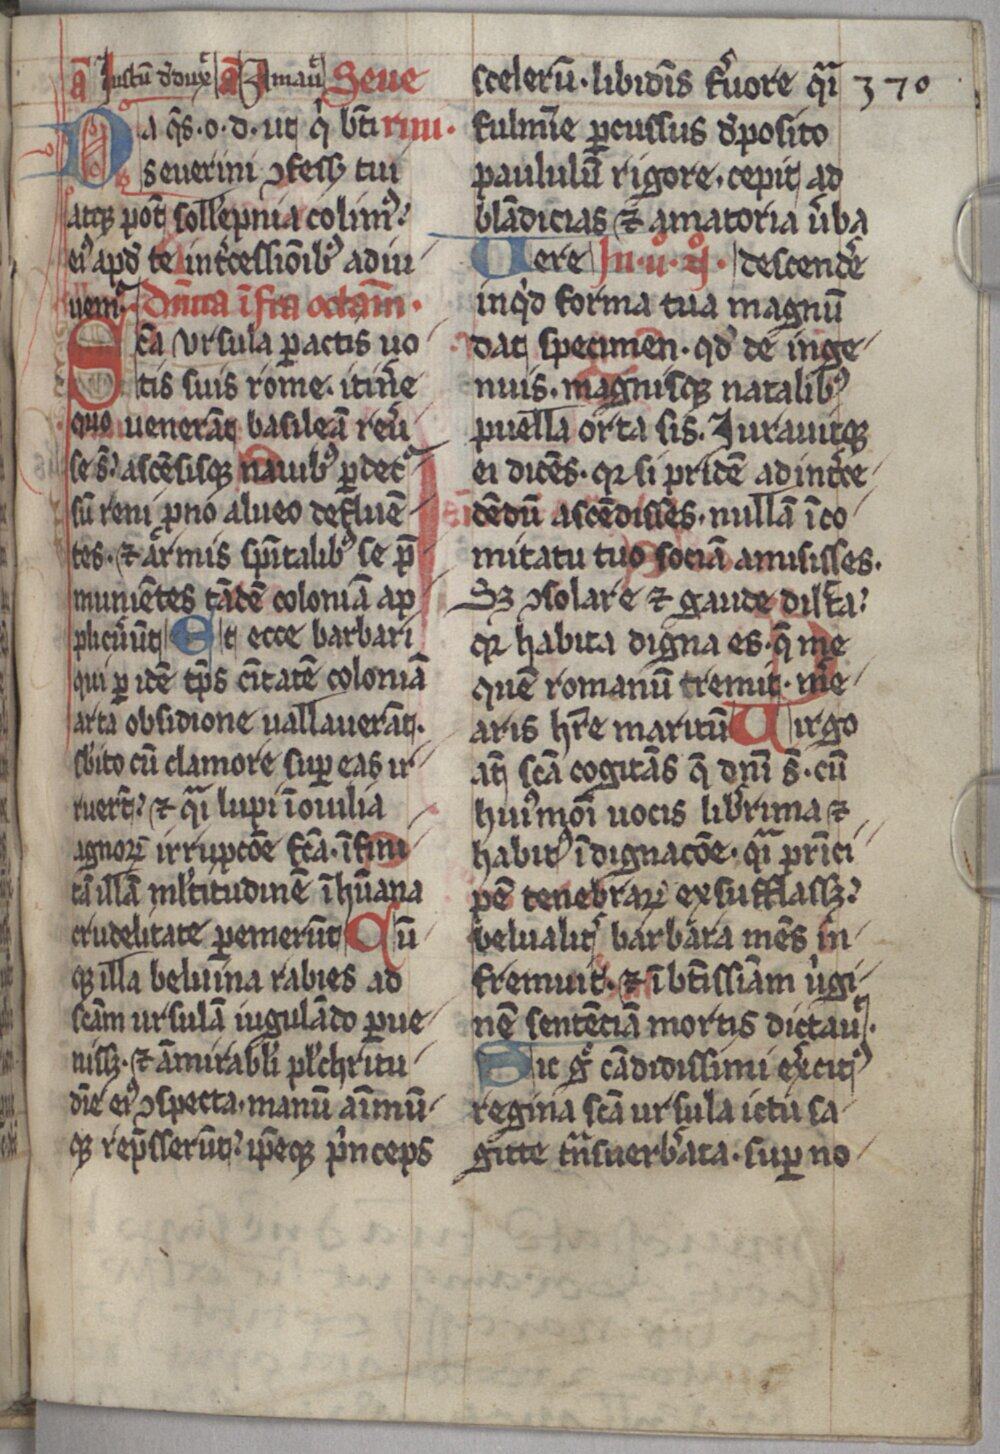 a Iustū ddux̄ a Amaū Seue
Da qs̄. o. d. ut q̇ bt̄i rini.
seuerini ɔfess; tui
atq; pot̄ sollēpnia colim9.
ei9 apd̄ te int̄cessiōib9 adiu
uem̄. Dn̄ica īfra octam̄.
Scā Vrsula pactis uo
tis suis rome. itin̄e
quo uenerāt basileā reūi
se s̄. ascēsisq; nauib9 p dec
sū reni pno alueo defluē
tes. ⁊ armis sp̄italib9 se p̄
muniētes tādē coloniā ap
plicuūt Et ecce barbari
qui p idē tp̄s ciūtatē coloniā
arta obsidione uallauerāt.
sbito cū clamore sup eas ir
ruert̄. ⁊ qi lupi ī ouilia
agnoꝝ irrupcōe fcā. īfini
tā illam ml̄titudinē īhūana
crudelitate pemerūt Cū
q; illa beluīna rabies ad
scām ursulā iugulādo pue
niss;. ⁊ āmirabl̄i pl̄chritu
dīe ei9 ɔspecta. manū aīmū
q; rep̄sserūt. ip̄eq; p̄nceps
scelerū. libidīs f̄uore qi 370
fulmīe pcussus dposito
paululū rigore. cepit ad
blādicias ⁊ amatoria ūba
Vere In. u. descende
inqd̄ forma tua magnū
dat specimen. qd̄ de inge
nuis. magnisq; natalib9
puella orta sis. Iurauitq;
ei dicēs. qꝛ si pridē ad int̄ce
dēdū ascēdisses. nullā ī co
mitatu tuo sociā amisisses.
S; ɔsolare ⁊ gaude dilc̄a.
qꝛ habita digna es. q̄ me
quē romanū tremit. me
aris hr̄e maritū Virgo
at̄ scā cogitās q̄ dn̄i s̄. cū
hui9mōi uocis libr̄rima ⁊
habit9 īdignacōe. qi prīci
pē tenebraꝝ exsufflass;.
belualit̄ barbara mēs in
fremuit. ⁊ ī bt̄issiām ūgi
nē sentēciā mortis dictauͥ.
Sic g̊ cādidissimi ex̄cit9
regina scā ursula ictu sa
gitte t̄nsuerb̄ata. sup no